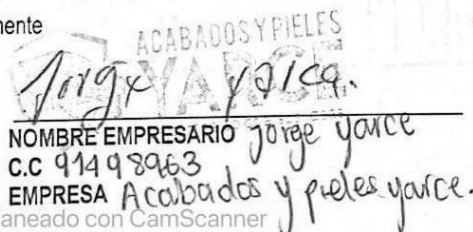 mente
ACABADOS Y PIELES
YARCE
Jorge yarce.
NOMBRE EMPRESARIO Jorge yarce
C.C 91498963
EMPRESA Acabados y pieles yarce.
aneado con CamScanner